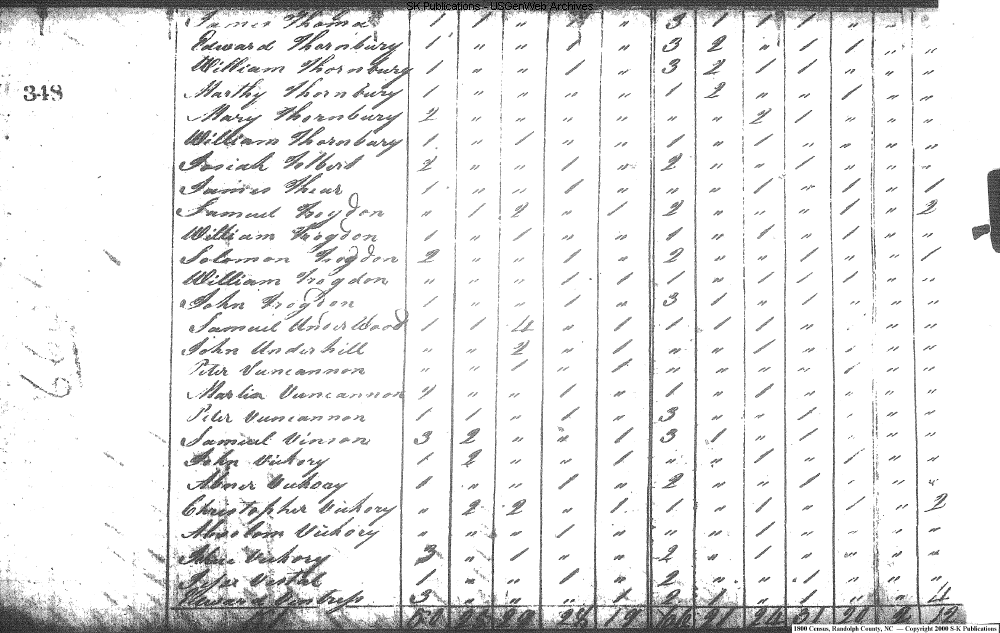 SK Publications - USGenWeb Archives
James Thoma 1 1 " 1 " 3 1 1 1 " " "
Edward Thornbury 1 " " 1 " 3 2 " 1 1 " "
348
William Thornbury 1 " " 1 " 3 2 1 1 " " "
Marthy Thornbury 1 " " " " 1 2 " " 1 " "
Mary Thornbury 2 " " " " " " 2 1 " " "
William Thornbury 1 " 1 " " 1 " 1 " " " "
Josiah Tolbert 2 " " 1 " 2 " " 1 " " "
James Thear 1 " " 1 " " " 1 " 1 " 1
Samuel Trogdon " 1 2 " 1 2 " " " 1 " 2
William Trogdon 1 " 1 " " 1 " 1 " 1 " "
Solomon Trogdon 2 " " 1 " 2 " " 1 " " 1
William Trogdon " " " 1 1 1 " 1 1 1 " "
John Trogdon 1 " " 1 " 3 1 " 1 " " "
Samuel UnderWood 1 1 4 " 1 1 1 1 " " " "
John Underhill " " 2 " 1 " " 1 " " "
Peter Vuncannon " " 1 " 1 " " " " 1 " "
Martin Vuncannon 2 " " 1 " 1 " 1 " " " "
Peter Vuncannon 1 1 " 1 " 3 " " 1 " " "
Samuel Vinson 3 2 " " 1 3 1 " 1 " " "
John Vickory 1 2 " " 1 " " 1 " 1 " "
Abner Vickory 1 " " 1 " 2 " " 1 " " "
Christopher Vickory " 2 2 " 1 1 " 1 " 1 " 2
Absolom Vickory " " " 1 " " " 1 " " " "
Vickory 3 " 1 " " 2 " 1 " " " "
Vestal 1 " " 1 " 2 " " 1 " " "
3 " " " 1 2 1 " " " " 4
24 31
1800 Census, Randolph County, NC — Copyright 2000 S-K Publications